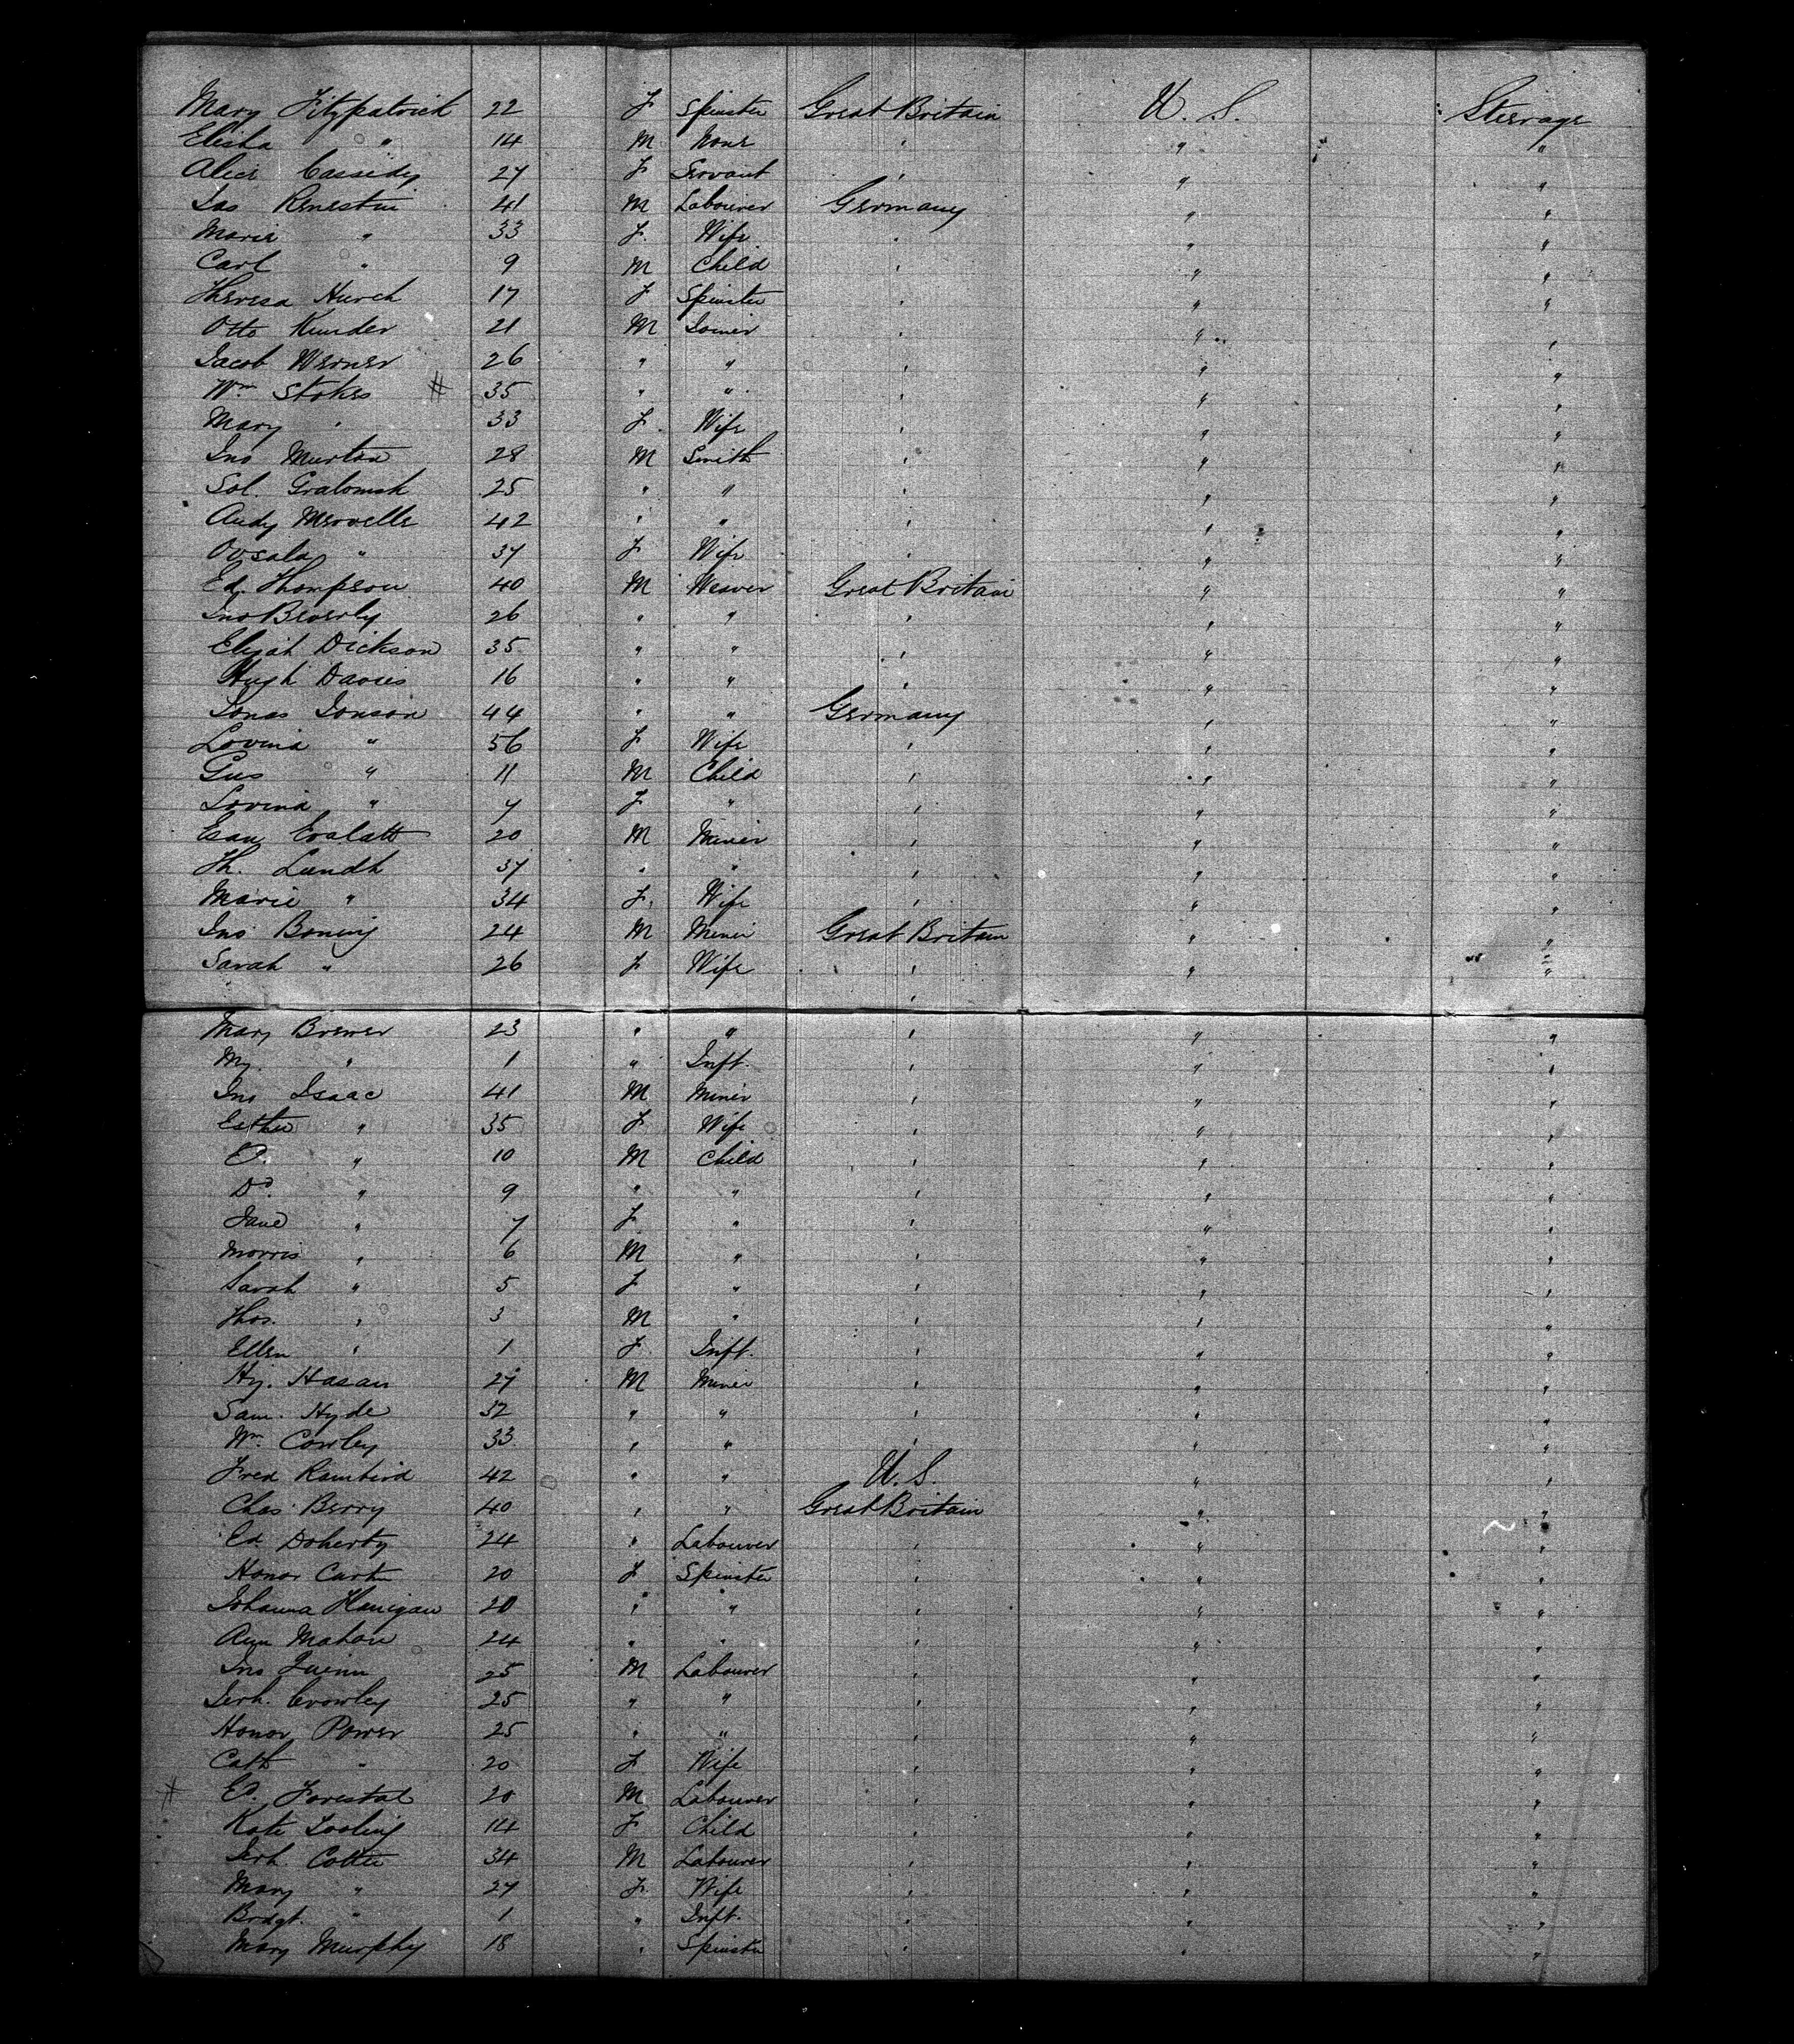 Mary Fitzpatrick 22 F Spinster Great Britain U. S. Steerage
Elisha " 14 M None " " "
Alice Cassidy 27 F Servant " " "
Jas Renestin 41 M Labourer Germany " "
Marie " 33 F. Wife " " "
Carl " 9 M Child " " "
Theresa Hurch 17 F Spinster " " "
Otto Kunder 21 M Joiner " " "
Jacob Werner 26 " " " " "
Wm Stokes # 35 " " " " "
Mary " 33 F. Wife " " "
Jno Murton 28 M Smith " " "
Sol. 25 " " " " "
Andy Mervelle 42 " " " " "
" 37 F Wife " " "
Ed. Thompson 40 M Weaver Great Britain " "
Jno Beverly 26 " " " " "
Elijah Dickson 35 " " " " "
Hugh Davies 16 " " " " "
Jonas Jonson 44 " " Germany " "
Lovina " 56 F Wife " " "
Gus " 11 M Child " " "
Lovina " 7 F " " " "
Esau 20 M Miner " " "
Th. Lundh 37 " " " " "
Marie " 34 F. Wife " " "
Jno Boning 24 M Miner Great Britain " "
Sarah " 26 F Wife " " "
Mary Brewer 23 " " " " "
My. " 1 " Inft. " " "
Jno Isaac 41 M Miner " " "
Esther " 35 F Wife " " "
E. " 10 M Child " " "
Dd. " 9 " " " " "
Jane " 7 F " " " "
Morris " 6 M " " " "
Sarah " 5 F " " " "
Thos. " 3 M " " " "
Ellen " 1 F Inft. " " "
Hy. Hasan 27 M Miner " " "
Sam. Hyde 32 " " " " "
Wm Cowley 33 " " " " "
Fred Rambird 42 " " U. S. " "
Chas Berry 40 " " Great Britain " "
Ed Doherty 24 " Labourer " " "
Honor Curtin 20 F Spinster " " "
Johanna Hanigan 20 " " " " "
Ann Mahon 24 " " " " "
Jno Quinn 25 M Labourer " " "
Jerh. Crowley 25 " " " " "
Honor Power 25 " " " " "
Cath " 20 F Wife " " "
# Ed. Forestal 20 M Labourer " " "
Kate Looling 14 F Child " " "
Jerh. Cotter 34 M Labourer " " "
Mary " 27 F. Wife " " "
Brdgt. " 1 " Inft. " " "
Mary Murphy 18 " Spinster " " "